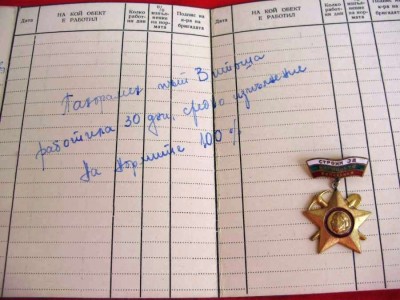 Дата
НА КОЙ ОБЕКТ Е РАБОТИЛ
Колко работни дни
изпълнение на нормата
Подпис на к-ра на бригадата
Дата
НА КОЙ ОБЕКТ Е РАБОТИЛ
Колко работни дни
% изпълнение на нормата
Подпис на к-ра на бригадата
работила 30 дни, средно изпълнение
на нормите 100 %
СТРОЯ ЗА